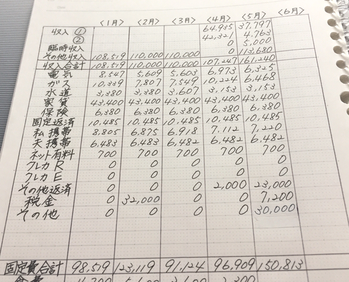 <1月> <2月> <3月> <4月> <5月> <6月>
収入 ① 64,915 37,797
② 42,321 4,763
臨時収入 0 5,000
その他収入 108,519 110,000 110,000 0 113,680
収入合計 108,519 110,000 110,000 107,247 161,240
電気 8,547 5,609 5,603 6,973 6,325
ガス 10,339 7,807 7,549 10,224 6,468
水道 3,380 3,380 3,607 3,153 3,153
家賃 43,400 43,400 43,400 43,400 43,400
保険 6,380 6,380 6,380 6,380 6,380
固定返済 10,485 10,485 10,485 10,485 10,485
私携帯 8,805 6,875 6,918 7,112 7,220
夫携帯 6,483 6,483 6,482 6,482 6,482
ネット有料 700 700 700 700 700
プレカR 0 0 0 0 0
プレカE 0 0 0 0 0
その他返済 0 0 0 2,000 23,000
税金 0 32,000 0 0 7,200
その他 0 0 0 0 30,000
固定費合計 98,519 123,119 91,124 96,909 150,813